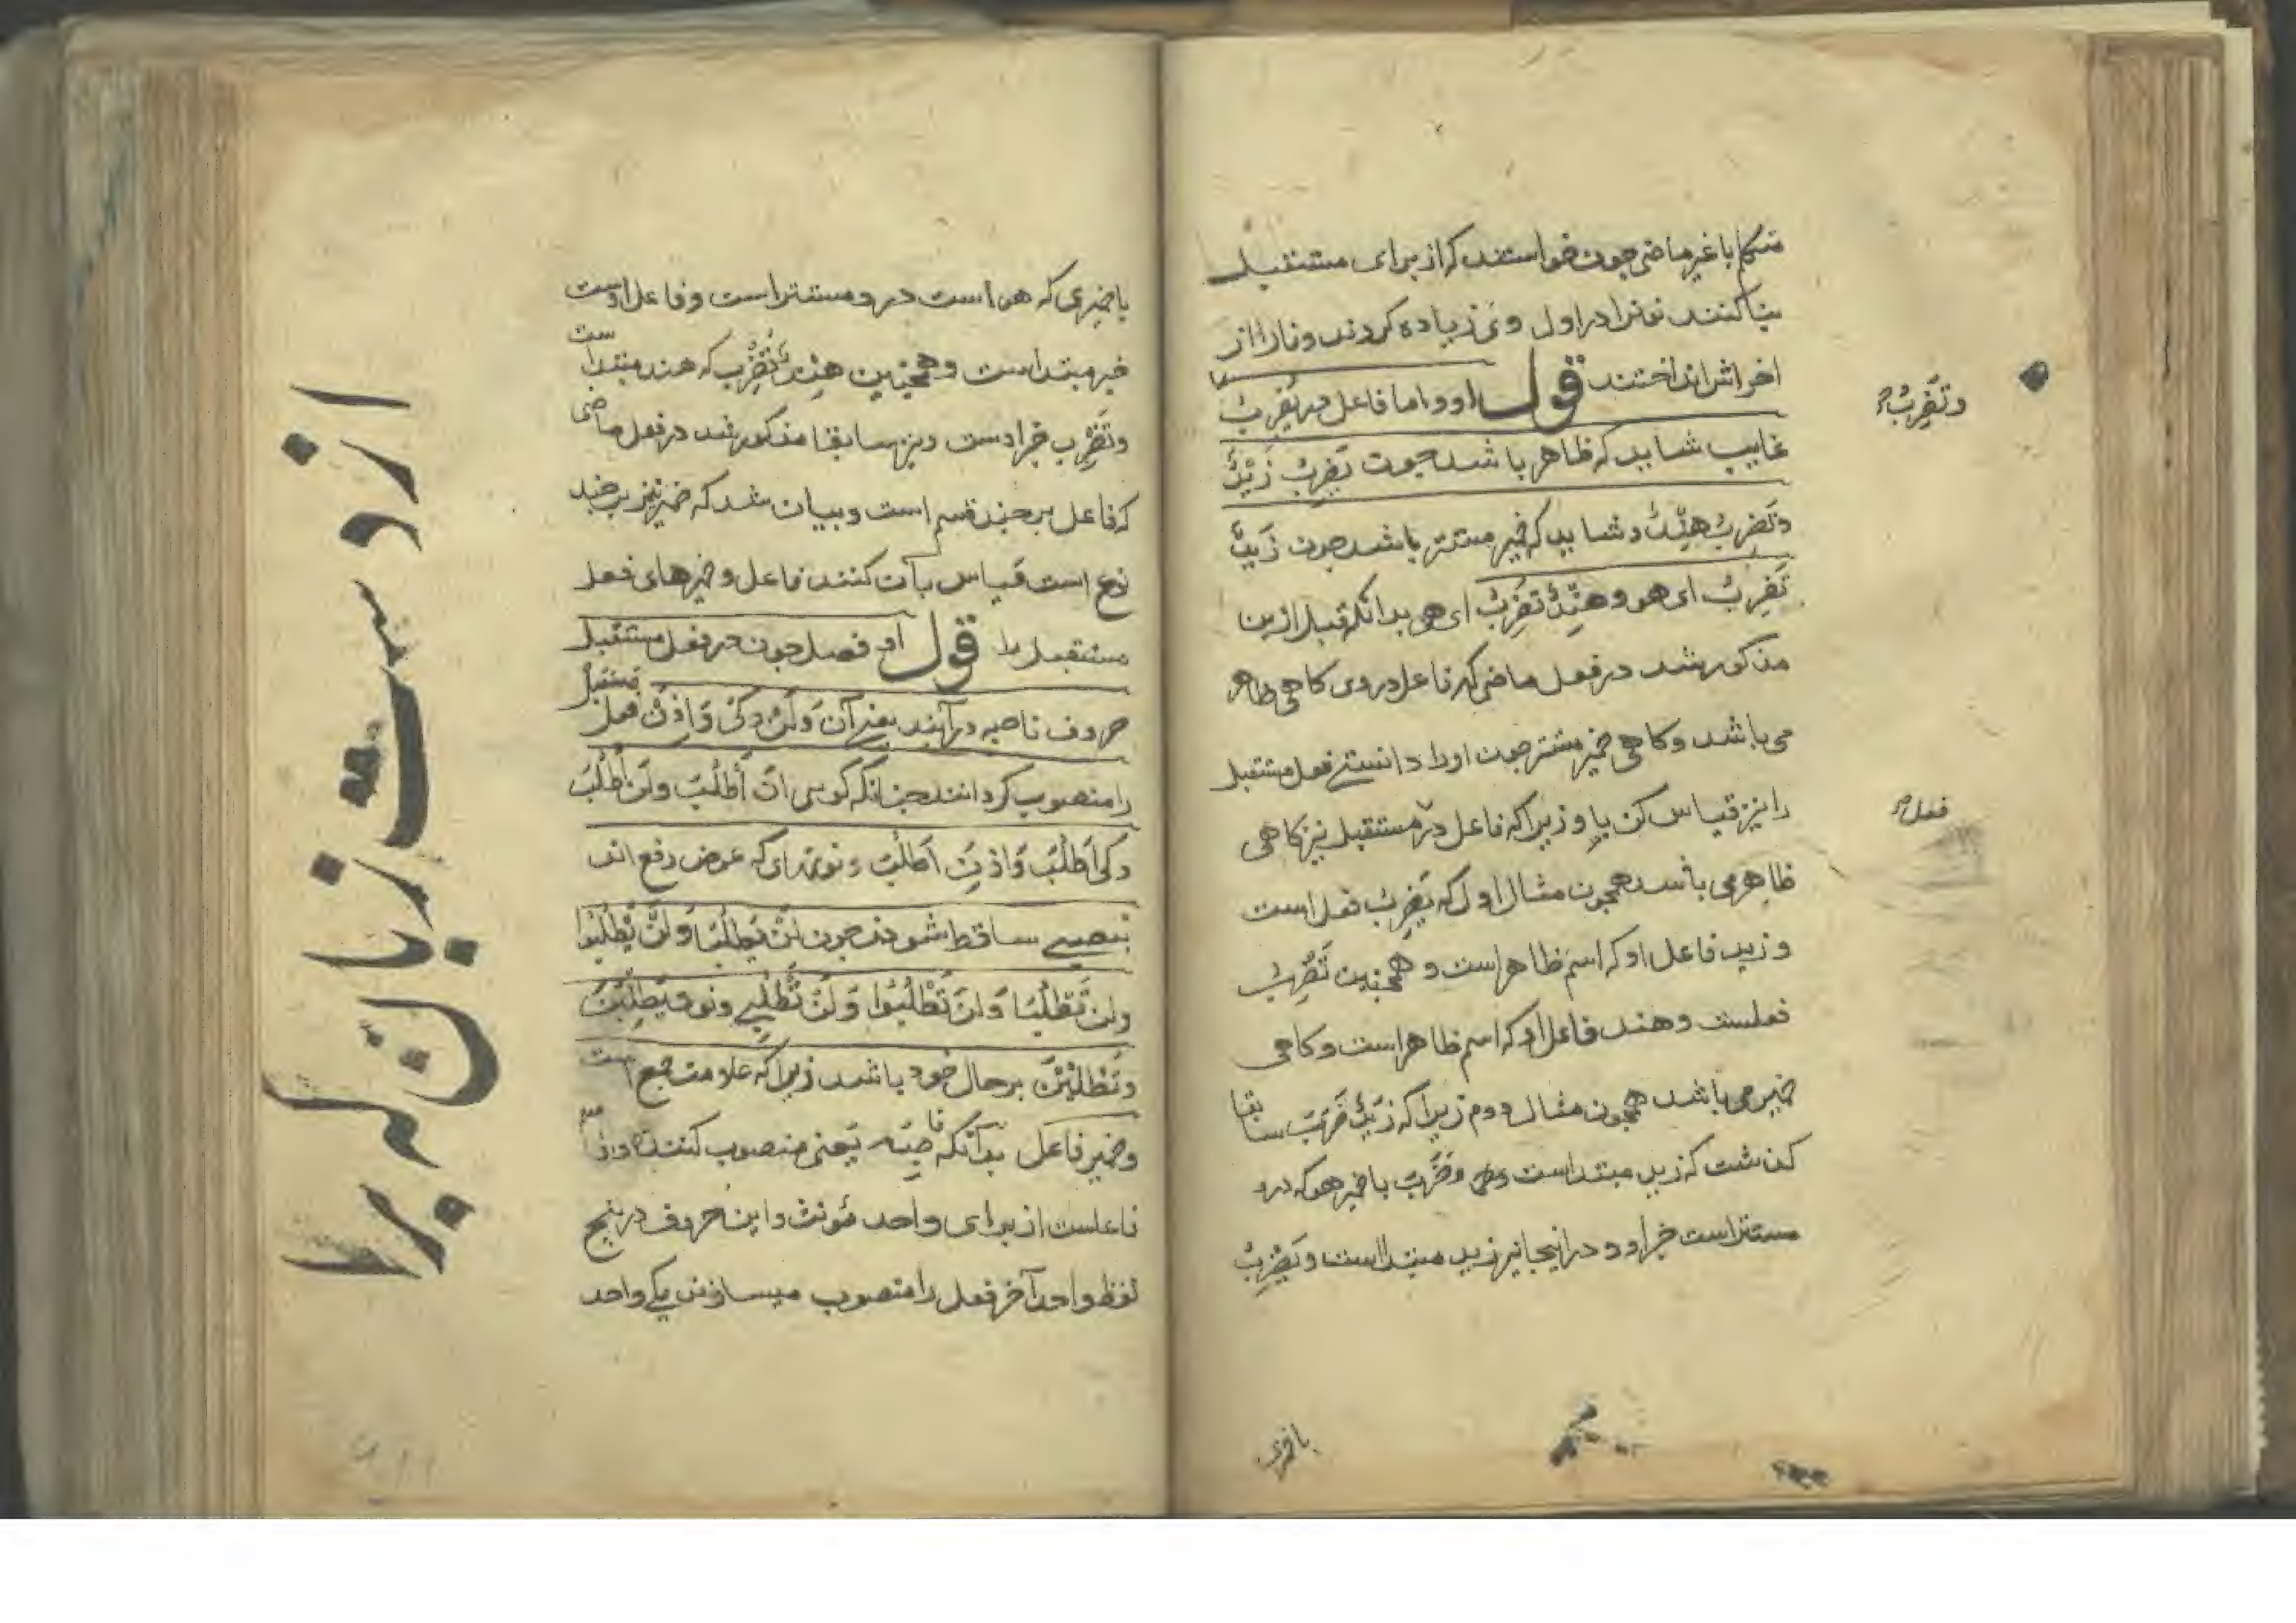 متکلم با غیر ماضی چون خواستند که از برای مستقبل
بنا کنند نونرا در اول وی زیاده کردند و نا را از
اخرش انداختند قول او و اما فاعل در یَضرِبُ
وتَضرِبُ
غایب شاید که ظاهر باشد چون یَضرِبُ زَیْدٌ
وتَضرِبُ هِنْدٌ و شاید که ضمیر مستتر باشد چون زَیدٌ
یَضرِبُ ای هو و هِنْدٌ تَضرِبُ ای هی بدانکه قبل ازین
مذکور شد در فعل ماضی که فاعل در وی کاهی ظاهر
می باشد و کاهی ضمیر مستتر چون اورا دانستی فعل مستقبل
را نیز قیاس کن با و زیرا که فاعل در مستقبل نیز کاهی
فعل
ظاهر می باشد همچون مثال اول که یَضرِبُ فعل است
و زید فاعل او که اسم ظاهر است و همچنین تَضرِبُ
فعلست و هند فاعل او که اسم ظاهر است و کاهی
ضمیر می باشد همچون مثال دوم زیرا که زَیدٌ ضَرَبَ سابقا
کذشت که زید مبتدا است و ضَرَبَ با ضمیر هو که درو
مستتر است خبر او و در اینجا نیز زید مبتدا است و یَضْرِبُ
با ضمیری
با ضمیری که هو است درو مستتر است و فاعل اوست
خبر مبتدا است و همچنین هِنْدٌ تَضرِبُ که هند مبتدا است
وتَضرِب خبر اوست و نیز سابقا مذکور شد در فعل ماضی
که فاعل بر چند قسم است و بیان شد که ضمیر نیز بر چند
نوع است قیاس بآن کنند فاعل و ضمیرهای فعل
مستقبل را قول او فصل چون در فعل مستقبل
حروف ناصبه در آیند یعنی اَنْ وَلَنْ وکَیْ وَاِذَنْ فعل مستقبل
را منصوب کردانند چنانکه کویی اَنْ اَطْلُبَ ولَنْ اَطْلُبَ
وکی اَطْلُبَ وَاِذَنْ اَطْلُبَ و نونهای که عوض رفع اند
بنصبی ساقط شوند چون لَنْ یَطْلُبَا وَلَنْ یَطْلُبُوا
ولن تَطْلُبَا وَلَنْ تَطْلُبُوا وَلَنْ تَطْلُبِی ونون یَطْلُبْنَ
وتَطْلُبْنَ بر حال خود باشد زیرا که علامت جمع است
وضمیر فاعل بدانکه ناصِبَه یعنی منصوب کننده
فاعلست از برای واحد مؤنث و این حروف در پنج
لفظ واحد آخر فعل را منصوب میسازند یکی واحد
از دست زبان که برا